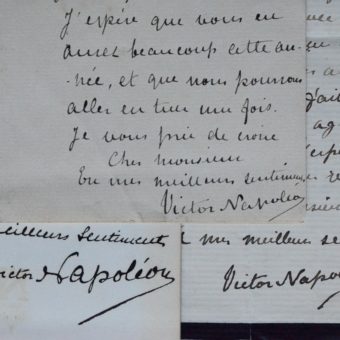 J'espère que vous en
aurez beaucoup cette an-
-née, et que nous pourrons
aller en tuer une fois.
Je vous prie de croire
Cher monsieur
En mes meilleurs sentiments
Victor Napoléon
meilleurs sentiments
Victor Napoléon
mes meilleurs se
Victor Napol
j'ai
ag